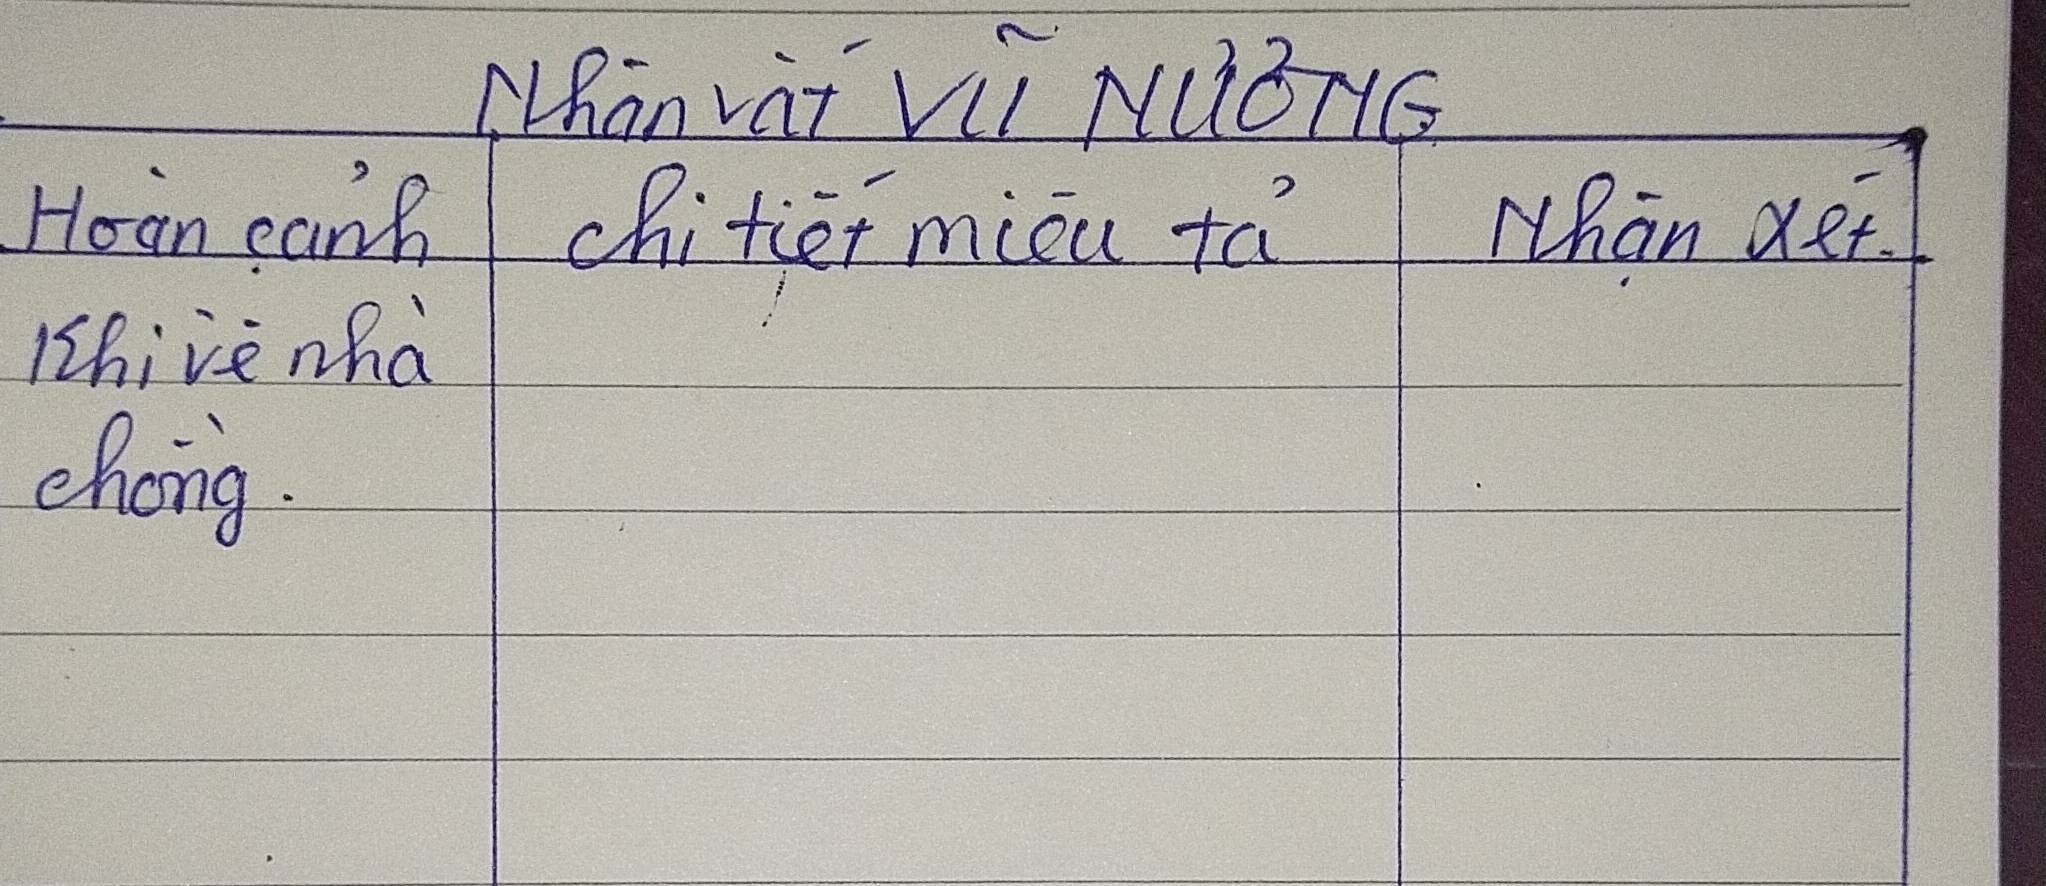 Nhân vật VŨ NƯƠNG
Hoàn cảnh chi tiết miêu tả Nhận xét.
Khi về nhà
chồng.